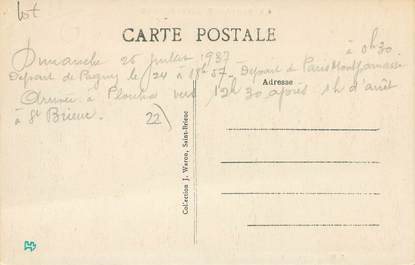 lot
CARTE POSTALE
Dimanche 25 juillet 1937
à 0h30
Départ de Pagny le 24 à 18h57 - Départ de Paris Montparnasse
Adresse
Arrivée à Plouha vers 12h 30 après 1h d'arrêt
à St Brieuc.
22)
Collection J. Waron, Saint-Brieuc